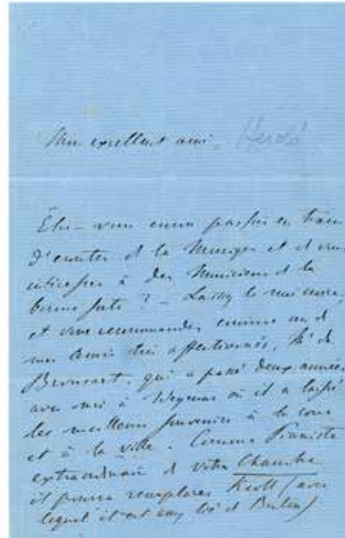 Mon excellent ami, Herold
Êtes-vous encore parfois en train
d'écouter de la Musique et de vous
intéresser à des Musiciens de la
bonne sorte ? — Laissez le moi
et vous recommander comme un de
mes amis très affectionnés, Mr de
Bronsart, qui a passé deux années
avec moi à Weymar où il a laissé
les meilleurs souvenirs à la cour
et à la ville. Comme Pianiste
extraordinaire de votre Chambre
il pourra remplacer Kroll (avec
lequel il est lié à Berlin)